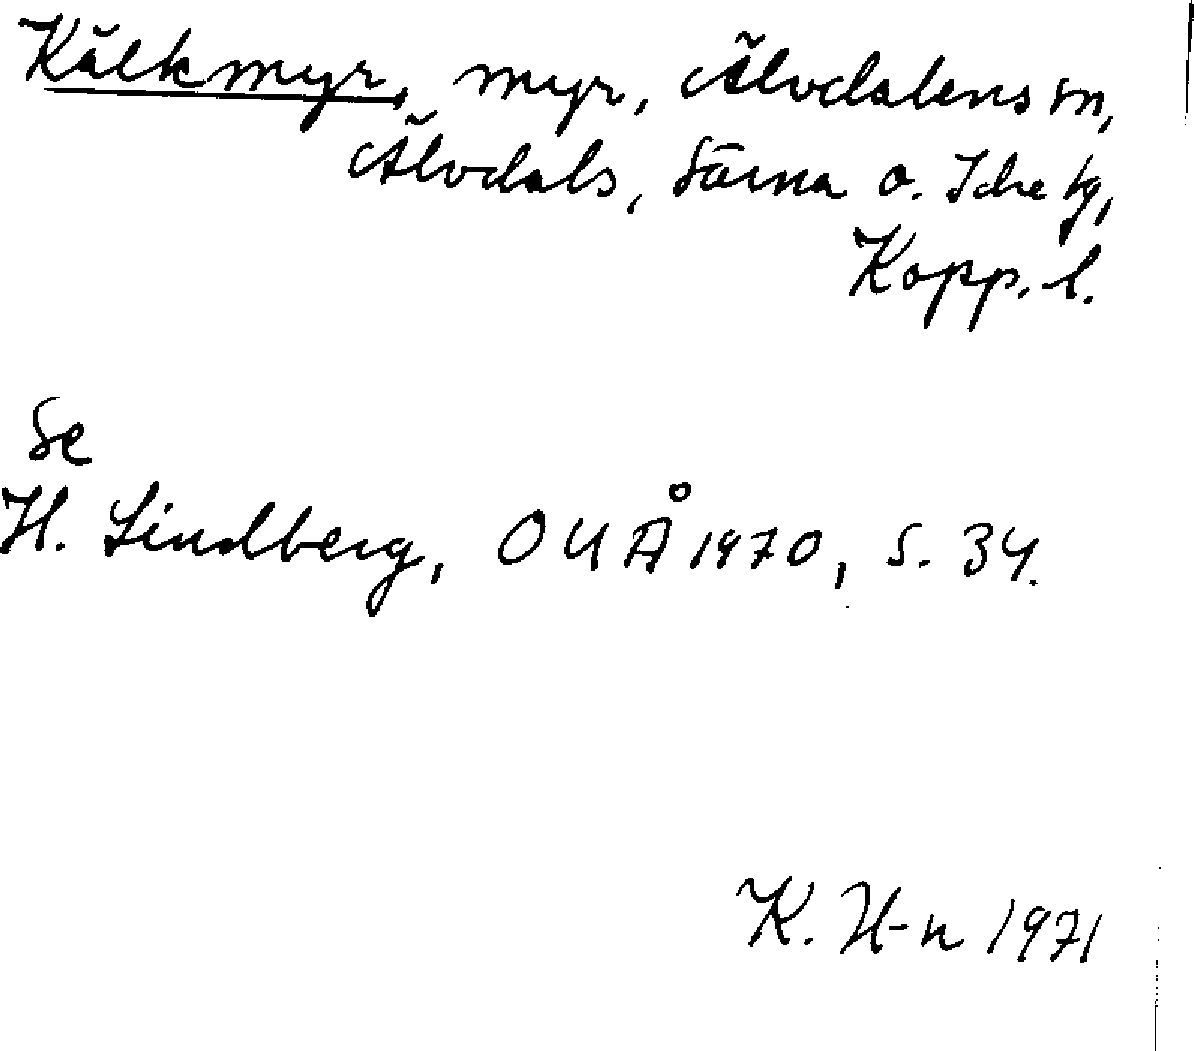 Kälkmyr, myr, Älvdalens sn,
Älvdals, Särna o. Idre tg,
Kopp. l.
Se
H. Lindberg, OUÅ 1970, s. 34.
K. H-n 1971